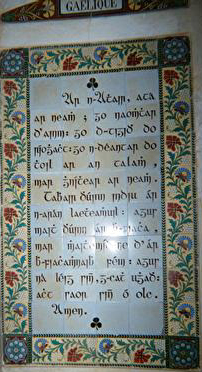 GAÉLIQUE
Ár n-Aṫair, atá
ar neaṁ ; go naoṁṫar
d'ainm: go d-tigiḋ do
ríoġaċt: go n-déantar do
ṫoil ar an talaṁ,
mar ġníṫear ar neaṁ.
Tabair dúinn indiu ár
n-arán laeṫeaṁuil: agus
maiṫ dúinn ár b-fiaċa,
mar ṁaiṫmídne d'ár
b-fiaċaṁnaiḃ féin: agus
ná léig sinn g-caṫuġaḋ:
aċt saor sinn ó olc.
Amen.